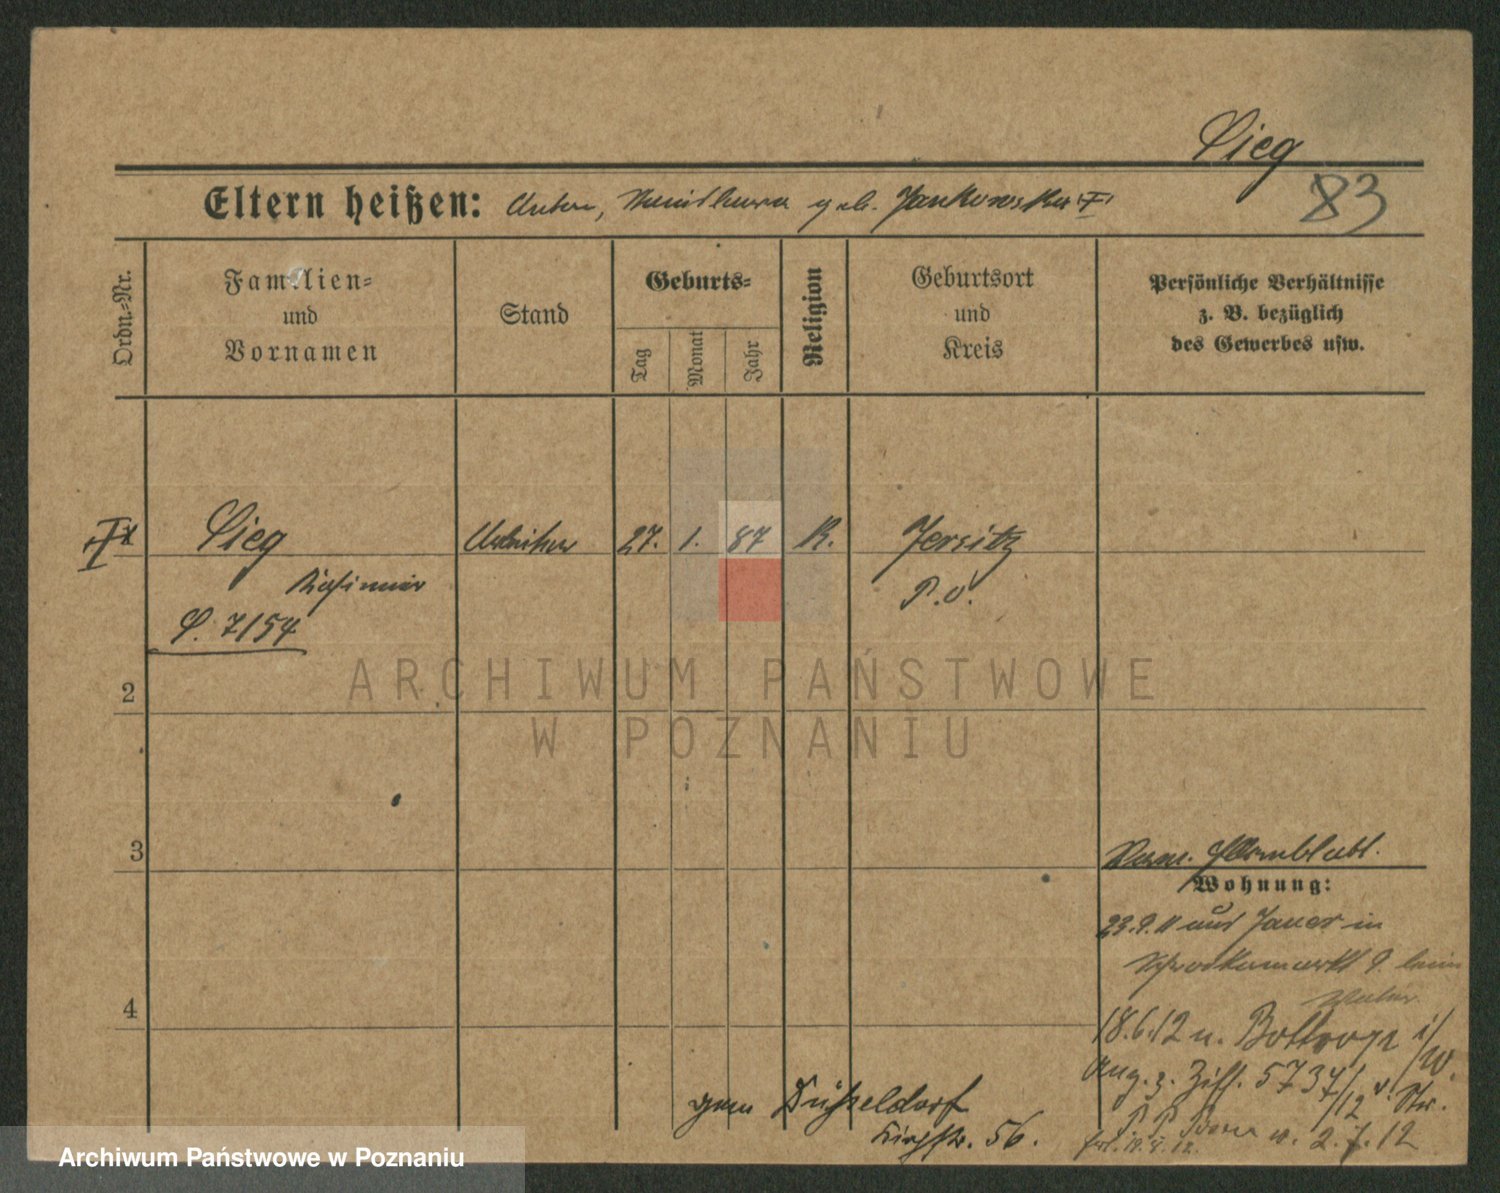 Sieg
83
Eltern heißen: Anton, geb. Jankowska
Ordn.=Nr.
Familien=
und
Vornamen
Stand
Geburts=
Tag
Monat
Jahr
Religion
Geburtsort
und
Kreis
Persönliche Verhältnisse
z. B. bezüglich
des Gewerbes usw.
Sieg
Arbeiter
27. 1. 87
K.
Jersitz
Kasimir
P. O.
S. 7154
2
3
4
Wohnung:
23.9.11 aus Jauer in
9. beim
Vater
18.6.12 n. Bottrop i/W.
Ang. z. Ziff. 5737/12 v. Str.
2.7.12
gem Düsseldorf
Kirchstr. 56.
ARCHIWUM PAŃSTWOWE
W POZNANIU
Archiwum Państwowe w Poznaniu